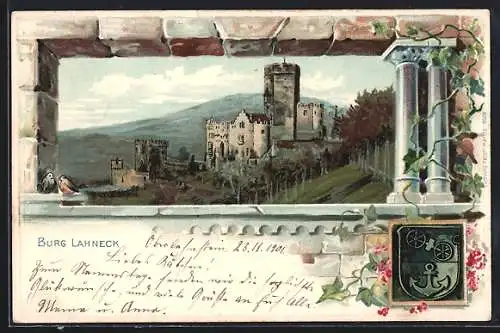 BURG LAHNECK
Oberlahnstein 23.11.1901
Liebes Käthchen.
Zum Namenstage senden wir die herzlichsten
Glückwünsche, und viele Grüße an Euch Alle.
Mama u. Anna.